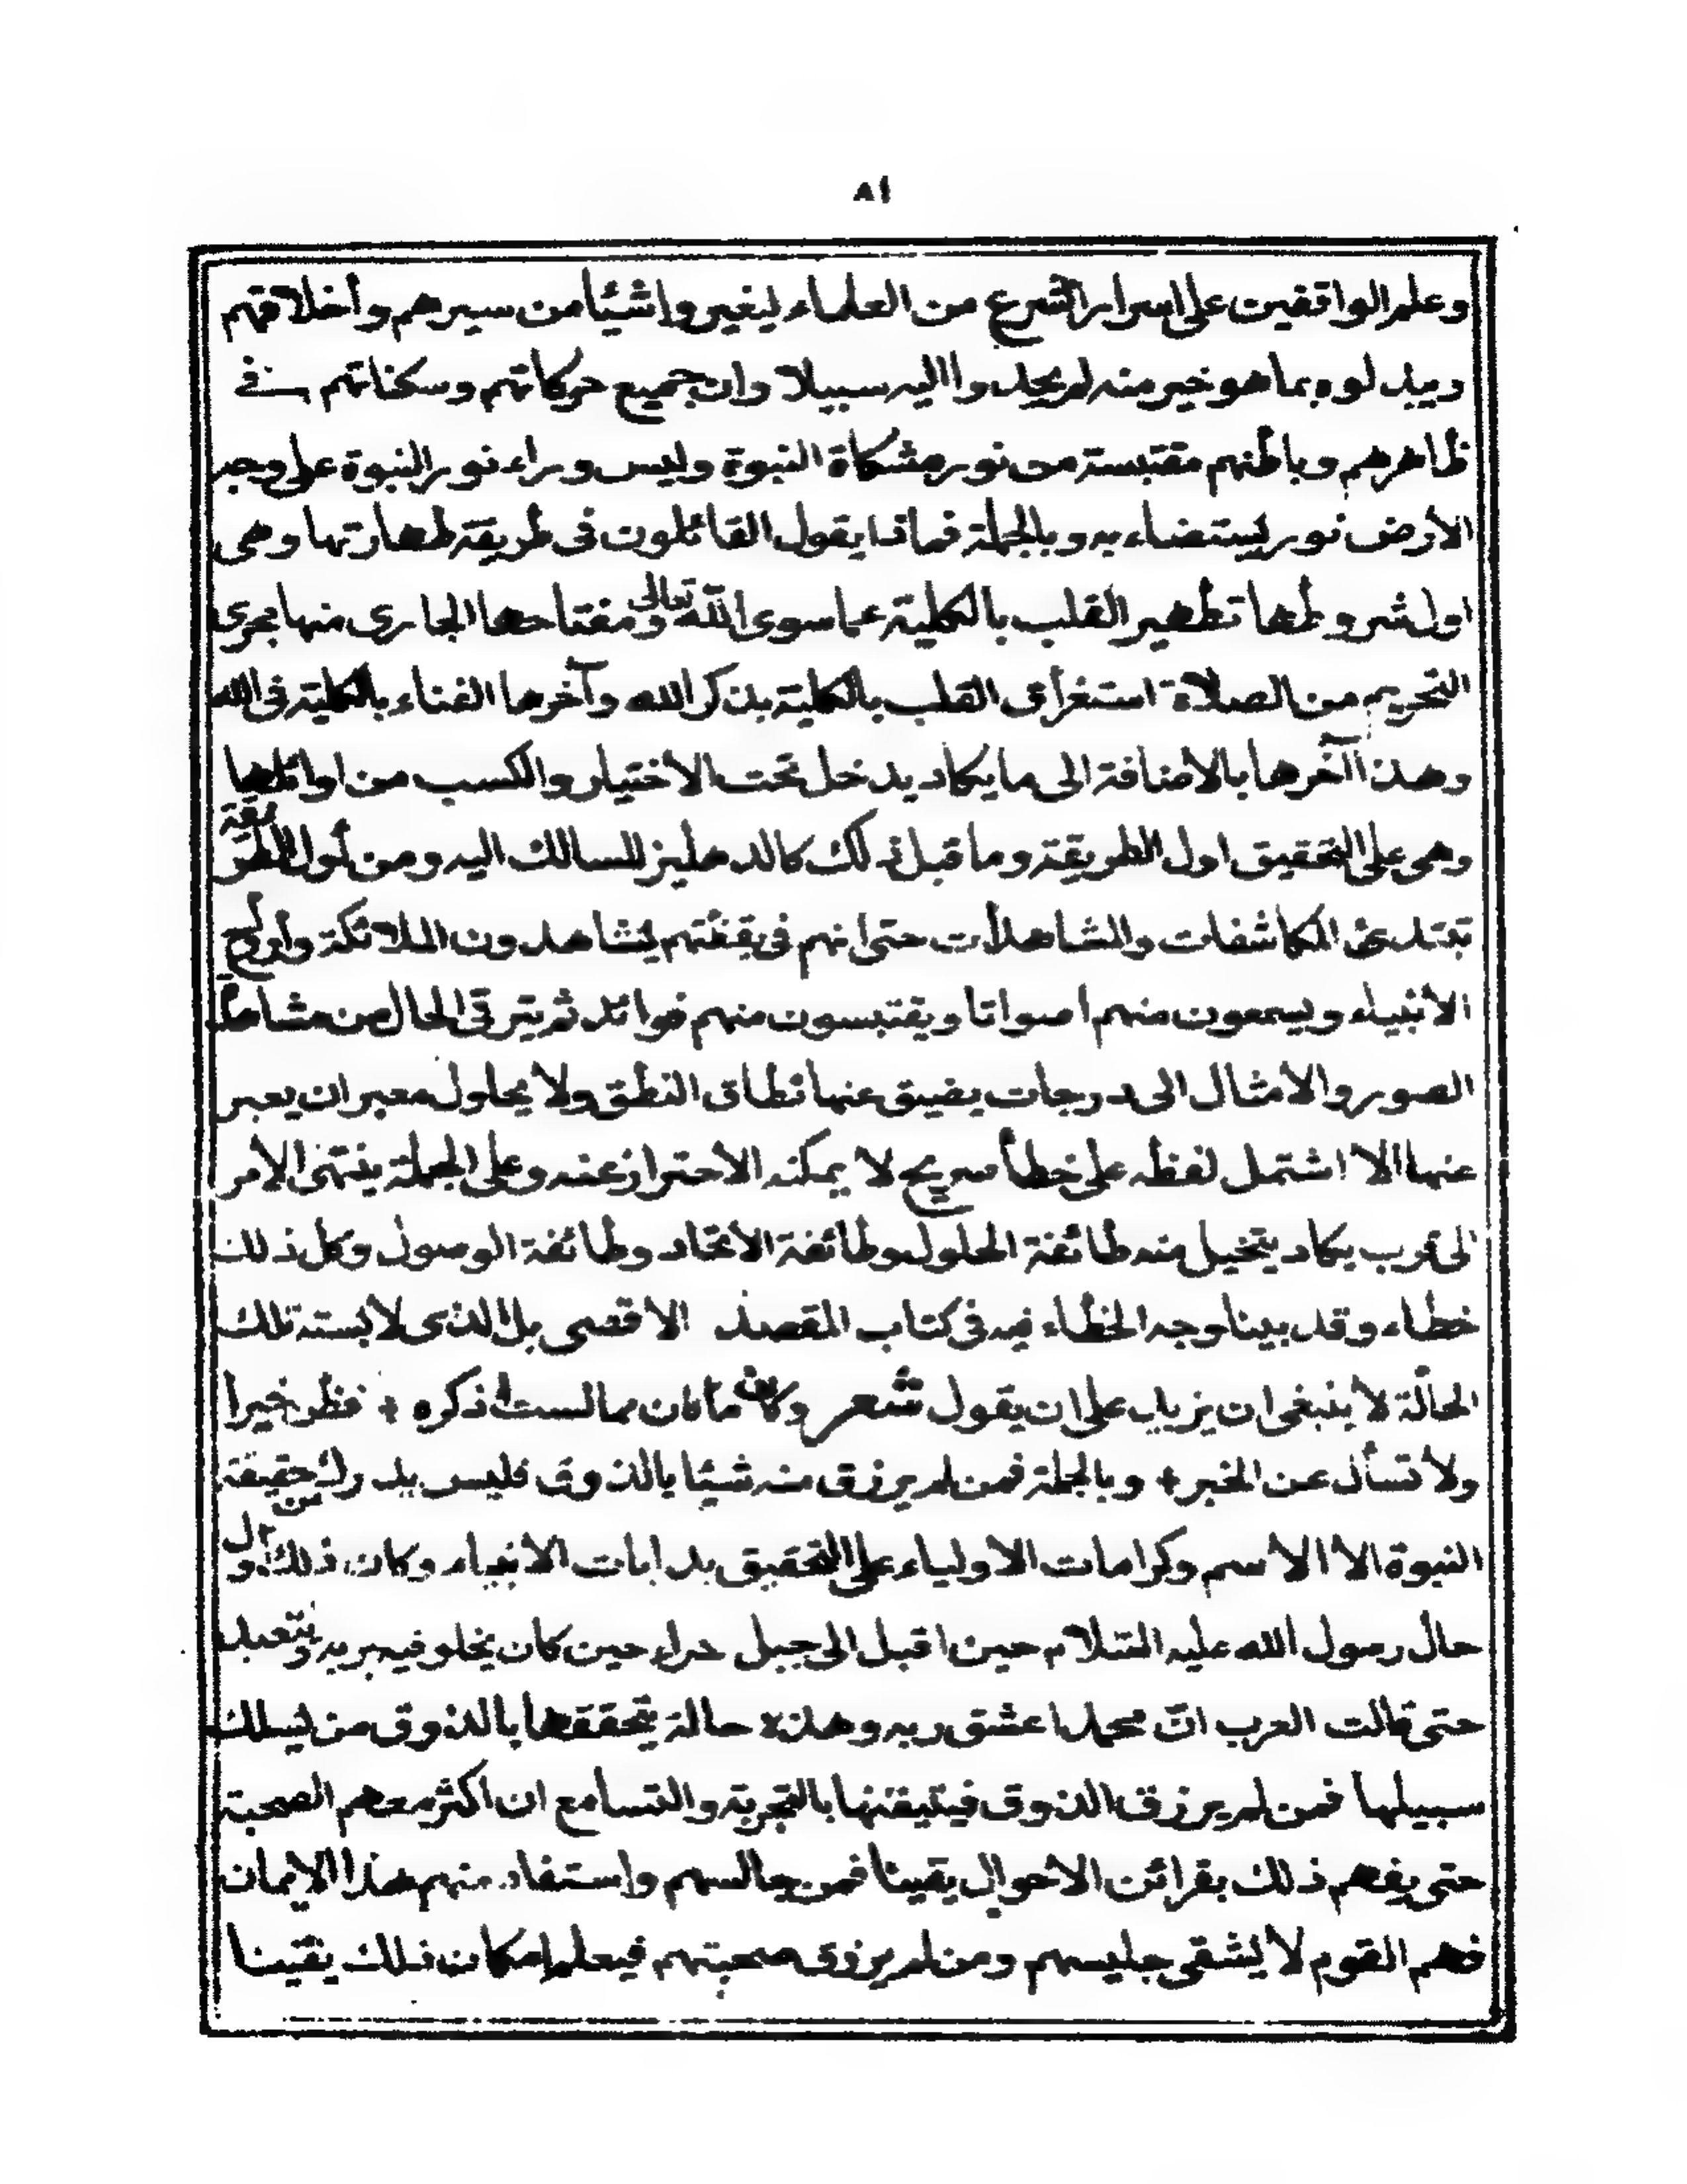 ٨١
وعلم الواقفين على اسرار الشرع من العلماء ليغيروا شيئا من سيرهم وأخلاقهم
ويبدلوه بما هو خير منه لم يجدوا اليه سبيلا وان جميع حركاتهم وسكناتهم في
ظاهرهم وباطنهم مقتبسة من نور مشكاة النبوة وليس وراء نور النبوة على وجه
الأرض نور يستضاء به وبالجملة فماذا يقول القائلون فى طريقة طهارتها وهى
اول شروطها تطهير القلب بالكلية عما سوى الله تعالى ومفتاحها الجارى منها مجرى
التحريم من الصلاة استغراق القلب بالكلية بذكر الله وآخرها الفناء بالكلية فى الله
وهذا آخرها بالاضافة الى ما يكاد يدخل تحت الاختيار والكسب من اوائلها
وهى على التحقيق اول الطريقة وما قبل ذلك كالدهليز للسالك اليه ومن أول الطريقة
تبتدئ المكاشفات والمشاهدات حتى انهم فى يقظتهم يشاهدون الملائكة وأرواح
الأنبياء ويسمعون منهم اصواتا ويقتبسون منهم فوائد ثم يترقى الحال من مشاهدة
الصور والامثال الى درجات يضيق عنها نطاق النطق ولا يحاول معبر ان يعبر
عنها الا اشتمل لفظه على خطأ صريح لا يمكنه الاحتراز عنه وعلى الجملة ينتهى الأمر
الى قرب يكاد يتخيل منه طائفة الحلول وطائفة الاتحاد وطائفة الوصول وكل ذلك
خطاء وقد بينا وجه الخطاء فيه فى كتاب المقصد الاقصى بل الذى لابسته تلك
الحالة لا ينبغى ان يزيد على ان يقول شعر وكان ما كان مما لست اذكره + فظن خيرا
ولا تسأل عن الخبر + وبالجملة فمن لم يرزق منه شيئا بالذوق فليس يدرك من حقيقة
النبوة الا الاسم وكرامات الاولياء على التحقيق بدايات الانبياء وكان ذلك اول
حال رسول الله عليه السّلام حين اقبل الى جبل حراء حين كان يخلو فيه بربه ويتعبد
حتى قالت العرب انّ محمدا عشق ربه وهذه حالة يتحققها بالذوق من يسلك
سبيلها فمن لم يرزق الذوق فيتيقنها بالتجربة والتسامع ان اكثر معهم الصحبة
حتى يفهم ذلك بقرائن الاحوال يقينا فمن جالسهم واستفاد منهم هذا الايمان
فهم القوم لا يشقى جليسهم ومن لم يرزق صحبتهم فيعلم امكان ذلك يقينا